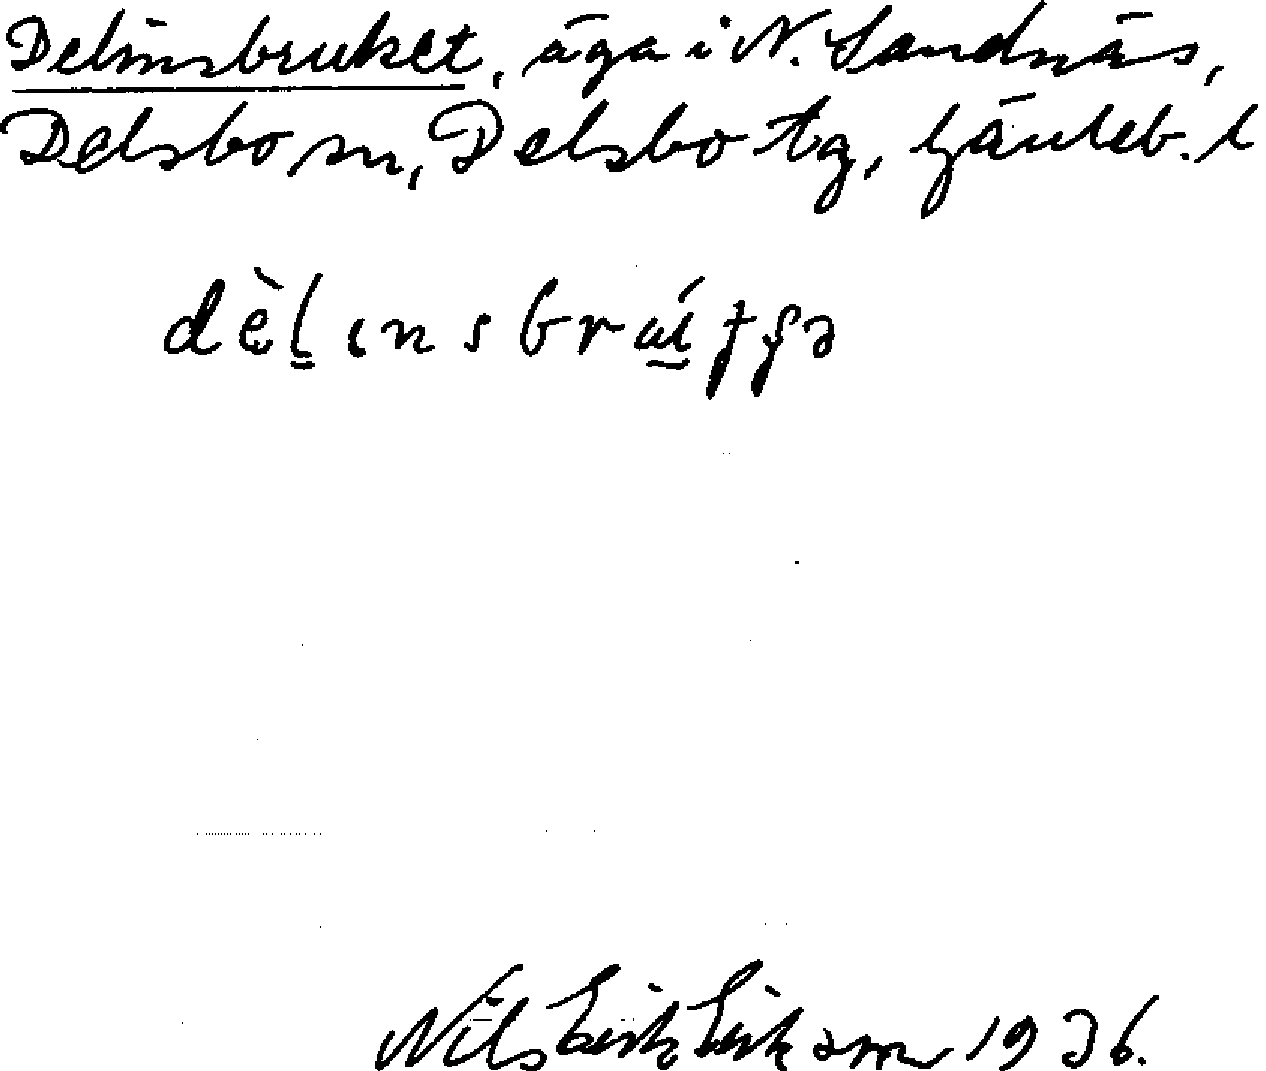 Delinsbruket, äga i N. Sandnäs,
Delsbo sn, Delsbo tg, Gävleb. l
dèlinsbrúi
Nils Erik Eriksson 1936.